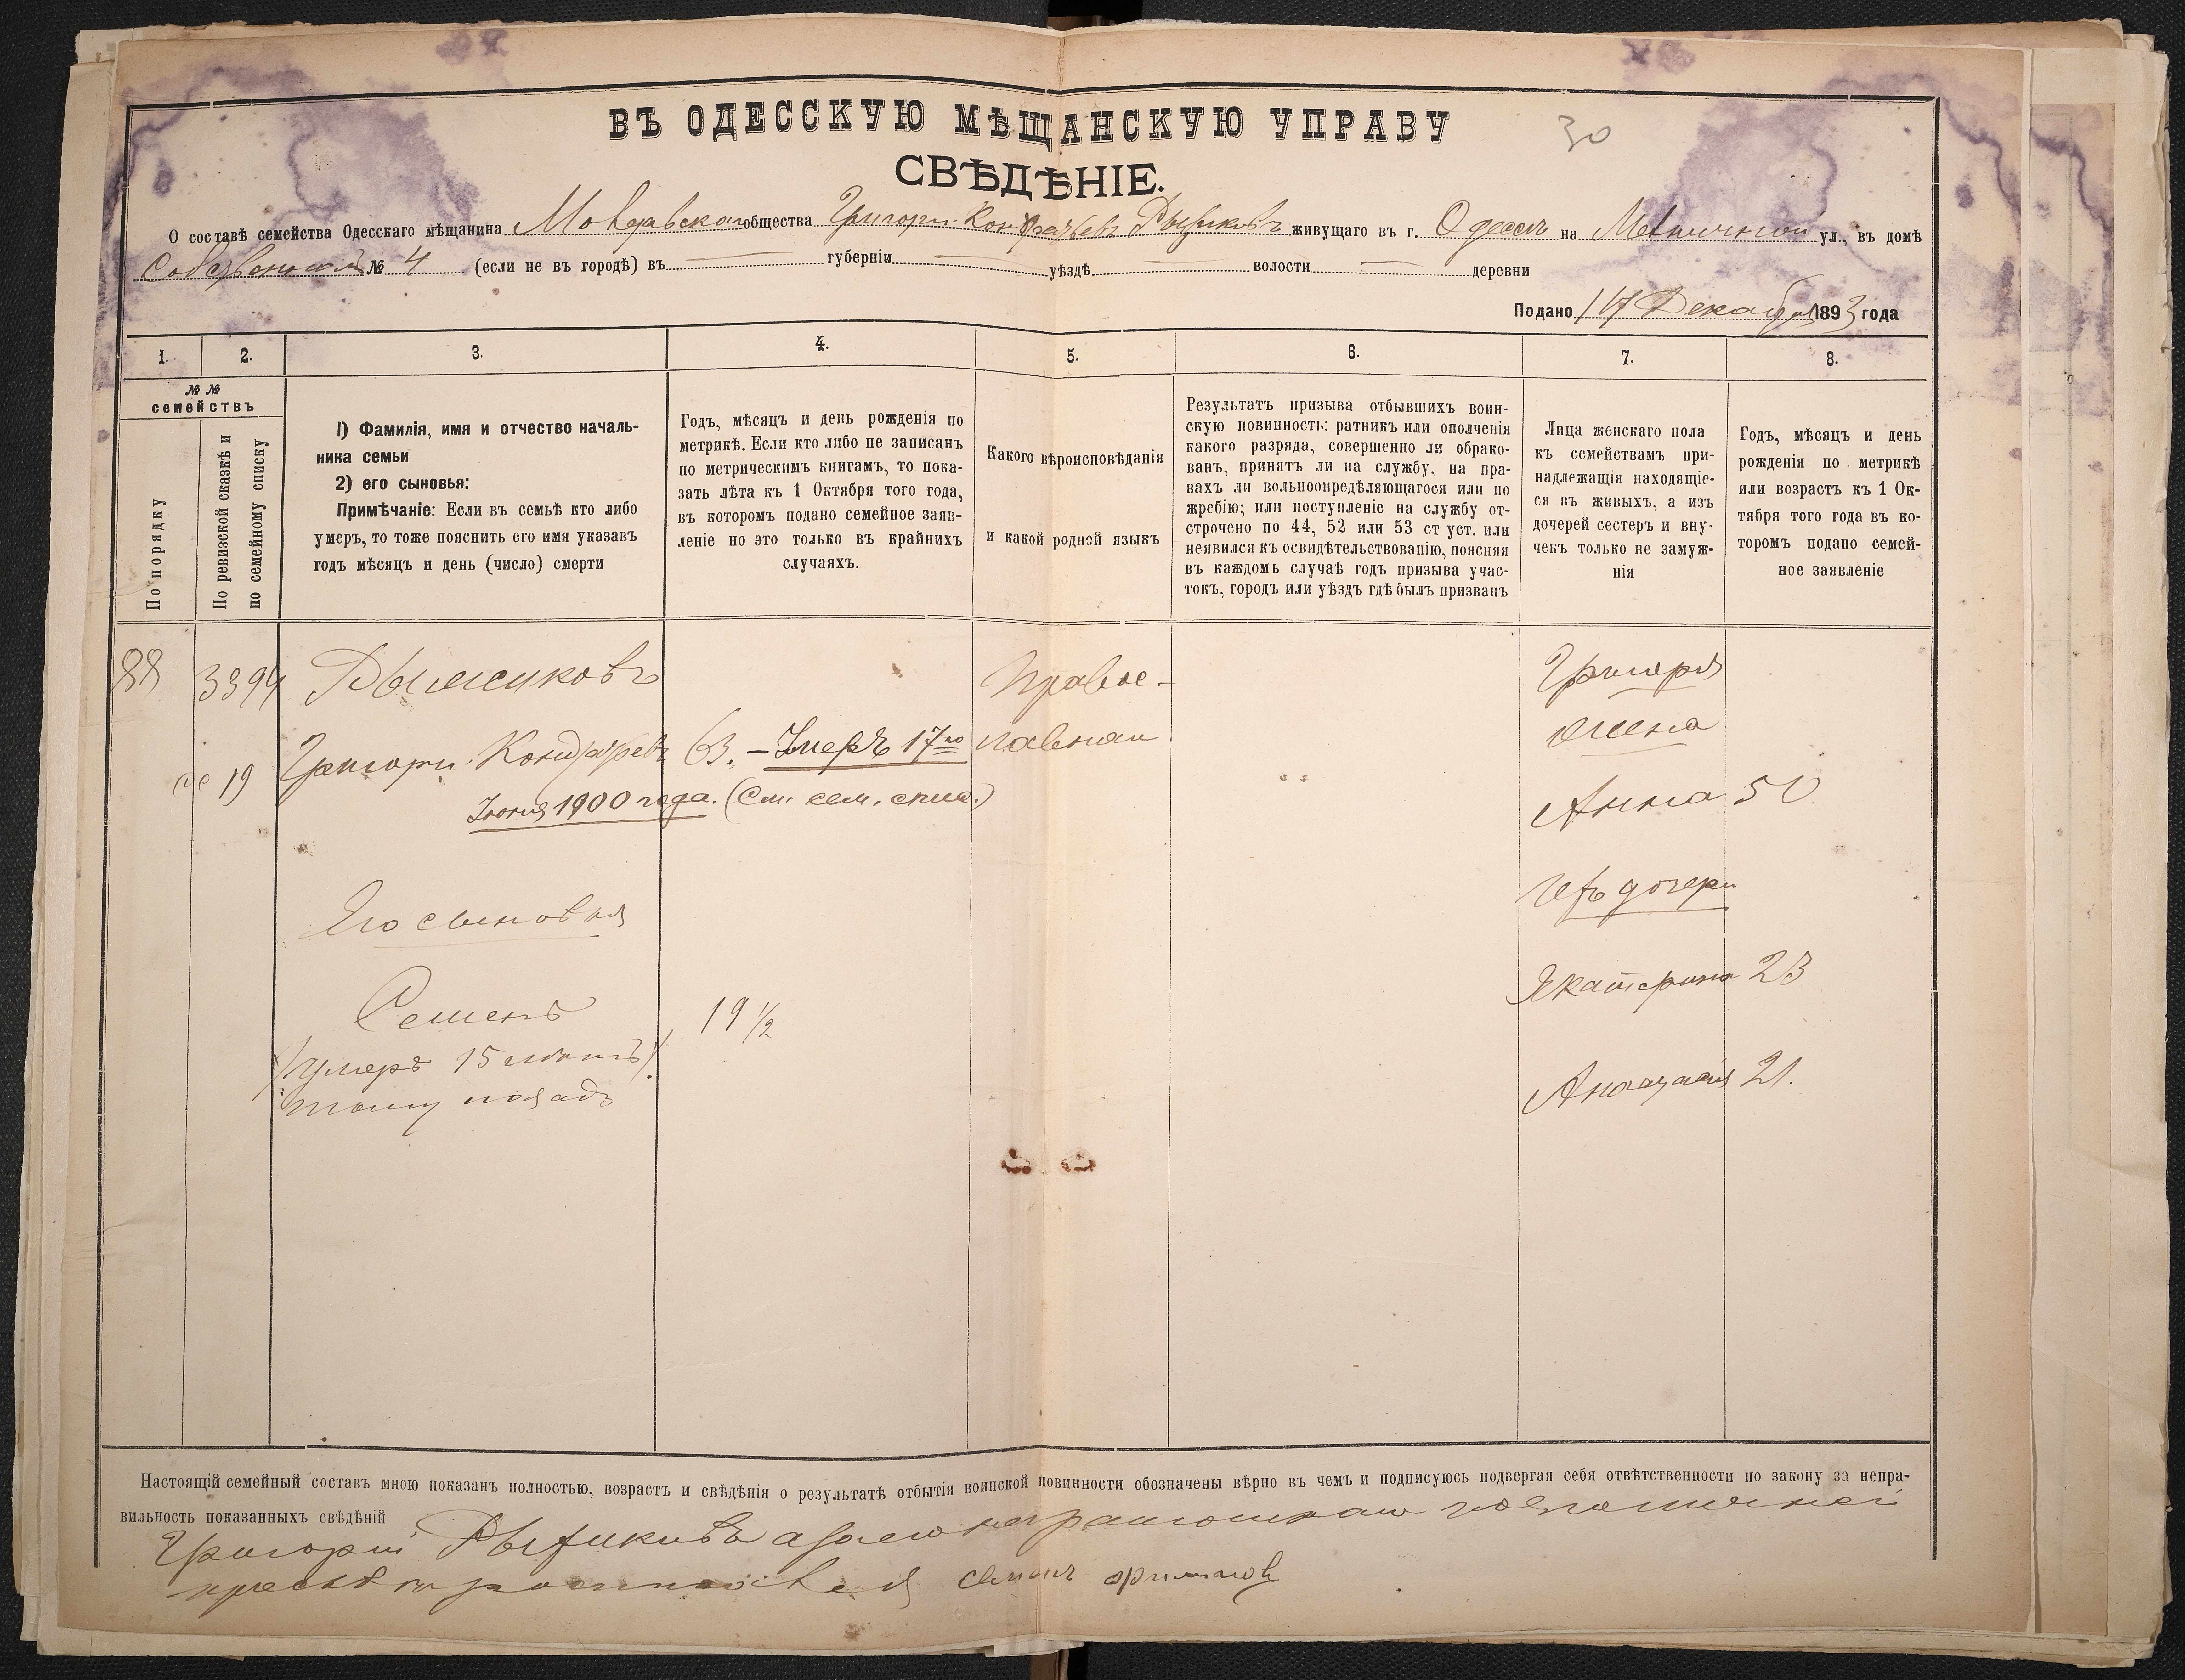 30
ВЪ ОДЕССКУЮ МѢЩАНСКУЮ УПРАВУ
СВѢДѢНІЕ.
О составѣ семейства Одесскаго мѣщанина общества Григорій живущаго въ г. Одессѣ на ул., въ домѣ
Собственномъ № 4 (если не въ городѣ) въ — губерніи — уѣздѣ — волости — деревни
Подано 17 Декабря 1893 года
1. 2. 3. 4. 5. 6. 7. 8.
№ №
семействъ
По порядку
По ревизской сказкѣ и
по семейному списку
1) Фамилія, имя и отчество началь-
ника семьи
2) его сыновья:
Примѣчаніе: Если въ семьѣ кто либо
умеръ, то тоже пояснить его имя указавъ
годъ мѣсяцъ и день (число) смерти
Годъ, мѣсяцъ и день рожденія по
метрикѣ. Если кто либо не записанъ
по метрическимъ книгамъ, то пока-
зать лѣта къ 1 Октября того года,
въ которомъ подано семейное заяв-
леніе но это только въ крайнихъ
случаяхъ.
Какого вѣроисповѣданія
и какой родной языкъ
Результатъ призыва отбывшихъ воин-
скую повинность: ратникъ или ополченія
какого разряда, совершенно ли обрако-
ванъ, принятъ ли на службу, на пра-
вахъ ли вольноопредѣляющагося или по
жребію; или поступленіе на службу от-
строчено по 44, 52 или 53 ст уст. или
неявился къ освидѣтельствованію, поясняя
въ каждомъ случаѣ годъ призыва учас-
токъ, городъ или уѣздъ гдѣ былъ призванъ
Лица женскаго пола
къ семействамъ при-
надлежащія находящіе-
ся въ живыхъ, а изъ
дочерей сестеръ и вну-
чекъ только не замуж-
нія
Годъ, мѣсяцъ и день
рожденія по метрикѣ
или возрастъ къ 1 Ок-
тября того года въ ко-
торомъ подано семей-
ное заявленіе
88 3394 Православная Григорія
жена
19 63. — Умеръ 17го
Іюня 1900 года. (См. сем. спис.)
Анна 50
Его сыновья
Ихъ дочери
Семенъ 19 1/2
Екатерина 23
умеръ 15 лѣтъ
тому назадъ
Анастасія 21.
Настоящій семейный составъ мною показанъ полностью, возрастъ и свѣдѣнія о результатѣ отбытія воинской повинности обозначены вѣрно въ чемъ и подписуюсь подвергая себя отвѣтственности по закону за непра-
вильность показанныхъ свѣдѣній
Григорій